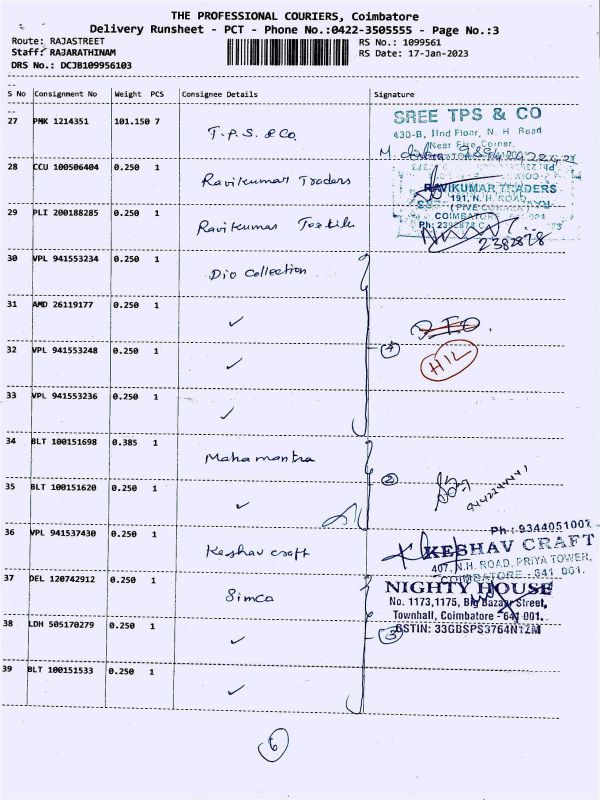 THE PROFESSIONAL COURIERS, Coimbatore
Delivery Runsheet - PCT - Phone No.:0422-3505555 - Page No.:3
Route: RAJASTREET
RS No.: 1099561
Staff: RAJARATHINAM
RS Date: 17-Jan-2023
DRS No.: DCJB109956103
S No Consignment No Weight PCS Consignee Details Signature
27 PMK 1214351 101.150 7 T.P.S. & Co.
SREE TPS & CO
430-B, IInd Floor, N. H. Road
Near Five Corner,
28 CCU 100506404 0.250 1 Ravikumar Traders
RAVIKUMAR TRADERS
191, N. H. ROAD,
29 PLI 200188285 0.250 1 Ravikumar Textiles
2382878
30 VPL 941553234 0.250 1 Dio Collection
31 AMD 26119177 0.250 1 ✓
D.T.O.
32 VPL 941553248 0.250 1 ✓ 4
HIL
33 VPL 941553236 0.250 1 ✓
34 BLT 100151698 0.385 1 Mahamantra
2
35 BLT 100151620 0.250 1 ✓
36 VPL 941537430 0.250 1 Keshav craft
Ph : 9344051007
KESHAV CRAFT
407, N.H. ROAD, PRIYA TOWER,
COIMBATORE - 641 001.
37 DEL 120742912 0.250 1 Simca
NIGHTY HOUSE
No. 1173,1175, Big Bazaar Street,
Townhall, Coimbatore - 641 001.
38 LDH 505170279 0.250 1 ✓ 3
GSTIN: 33GBSPS3764N1ZM
39 BLT 100151533 0.250 1 ✓
6